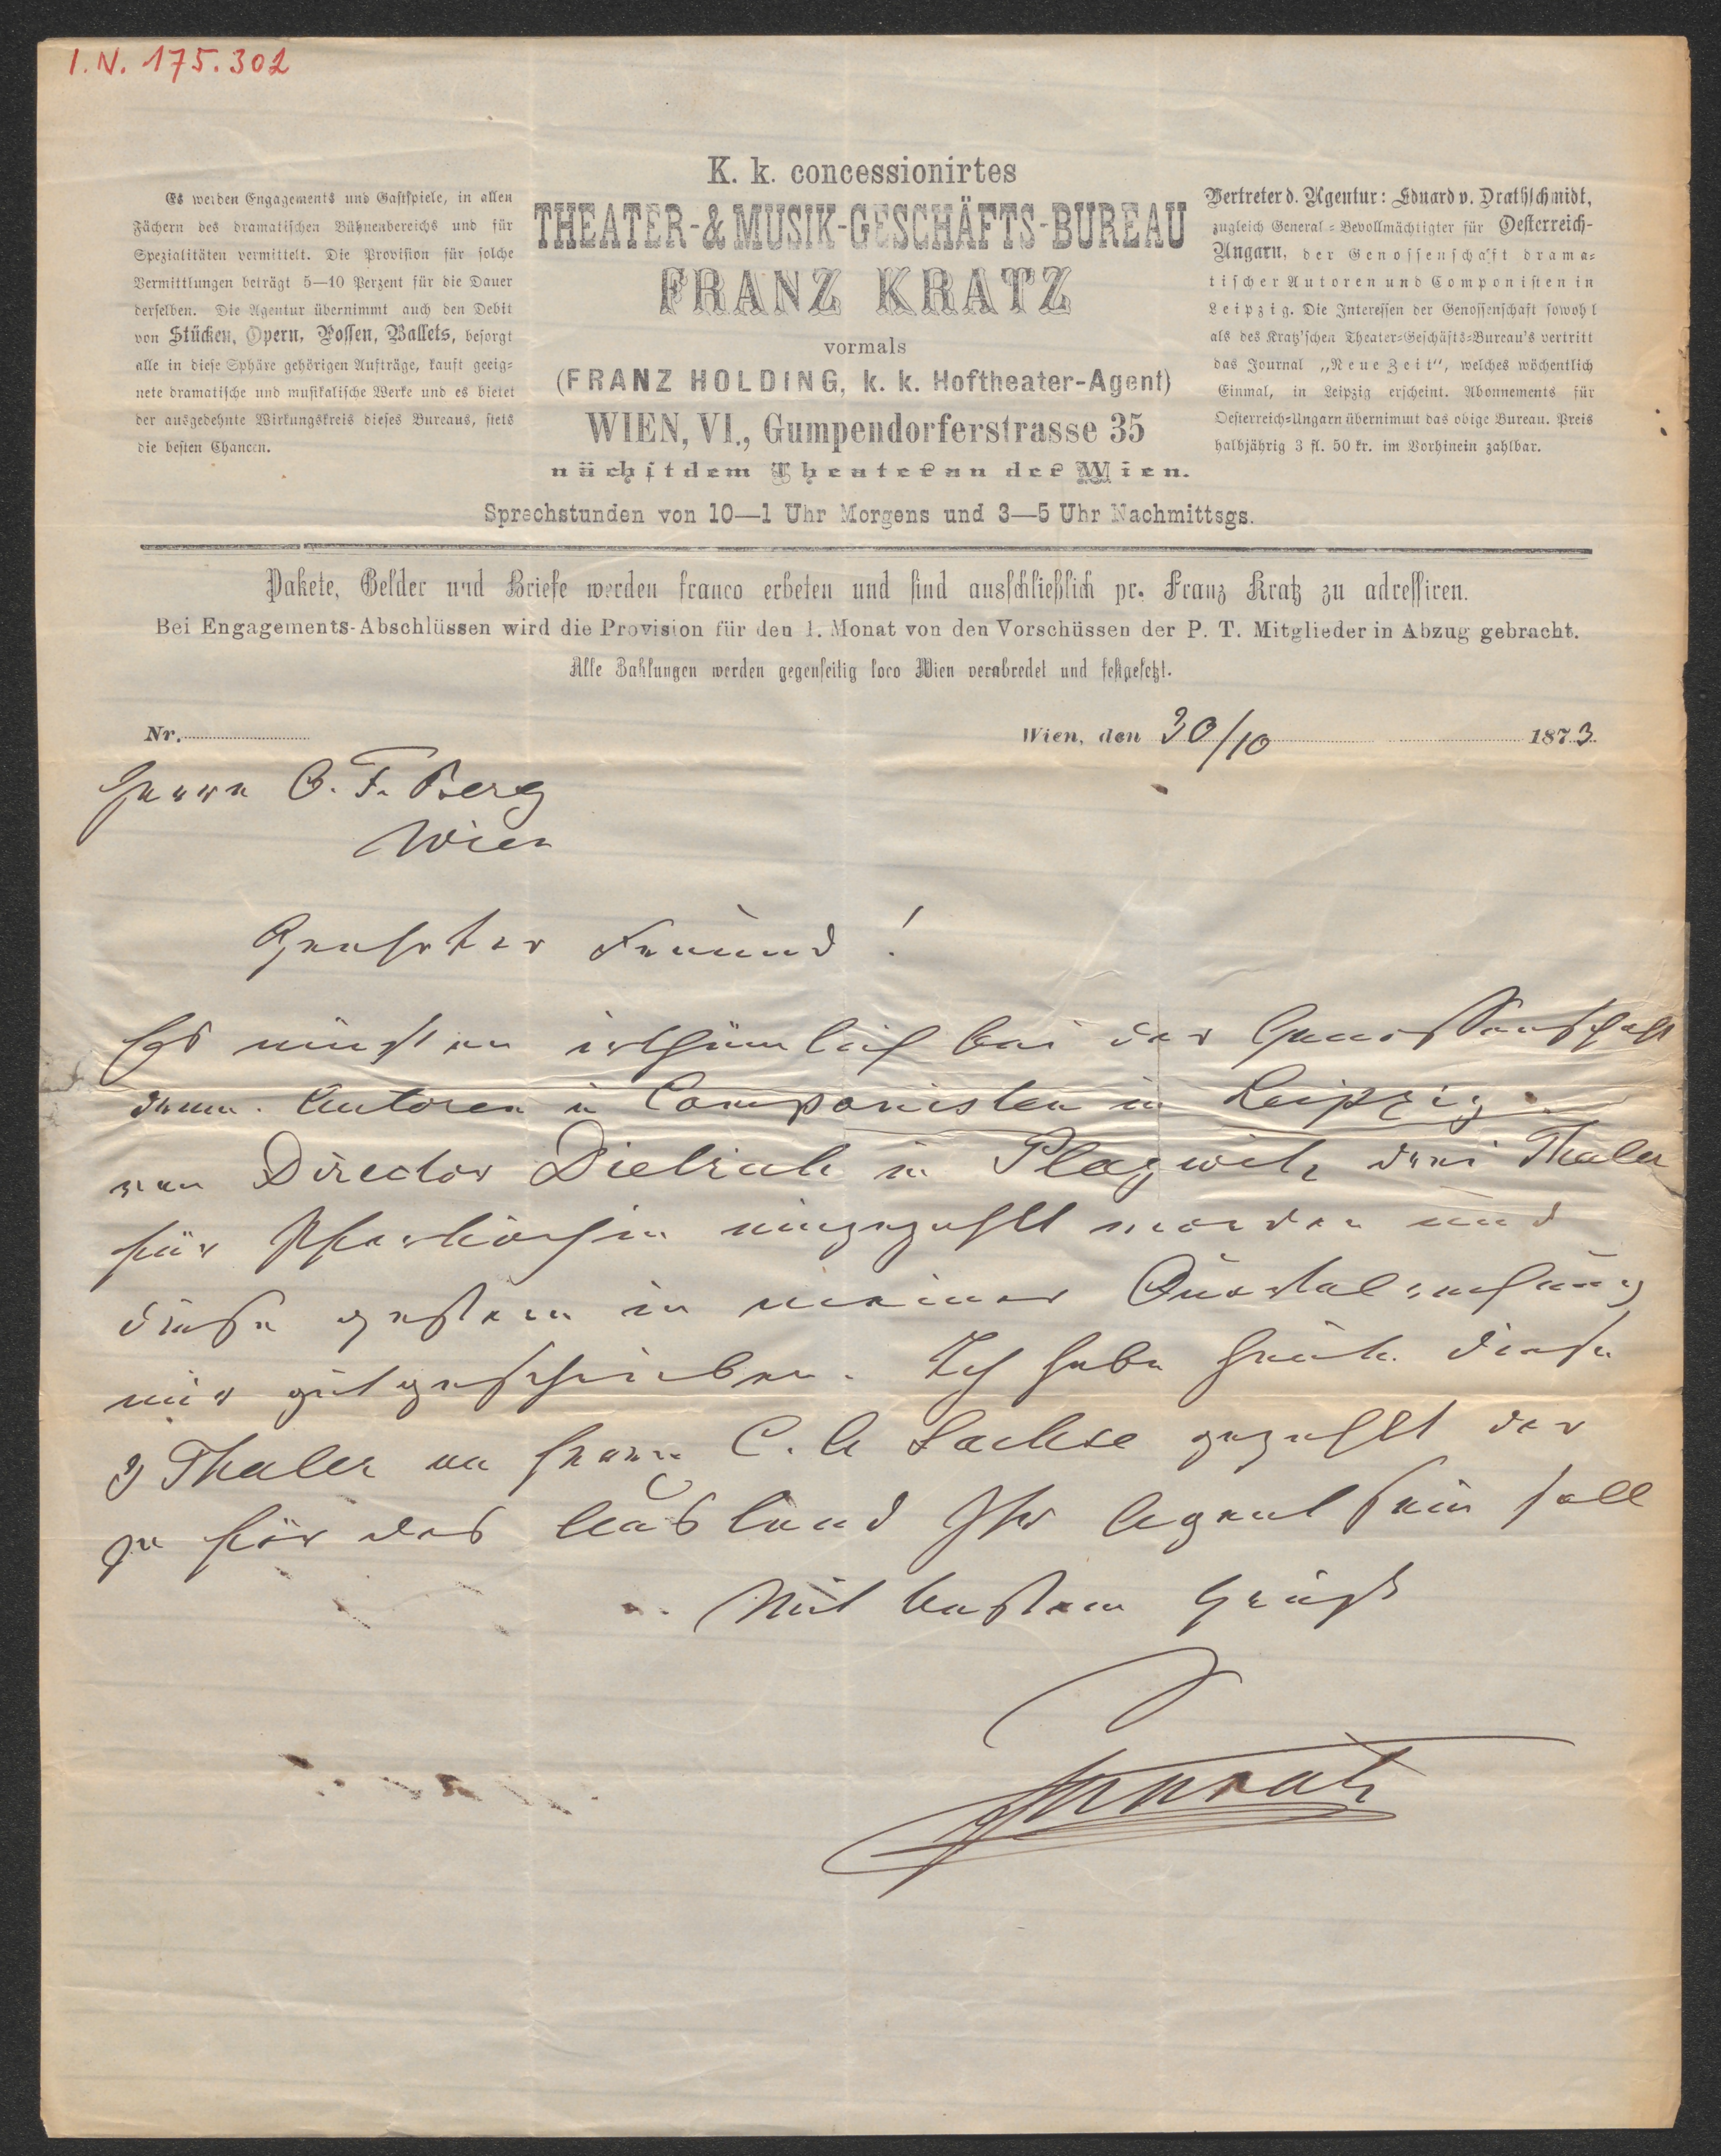 I. N. 175.302
Es werden Engagements und Gastspiele, in allen
Fächern des dramatischen Bühnenbereichs und für
Spezialitäten vermittelt. Die Provision für solche
Vermittlungen beträgt 5—10 Perzent für die Dauer
derselben. Die Agentur übernimmt auch den Debit
von Stücken, Opern, Possen, Ballets, besorgt
alle in diese Sphäre gehörigen Aufträge, kauft geeig-
nete dramatische und musikalische Werke und es bietet
der ausgedehnte Wirkungskreis dieses Bureaus, stets
die besten Chancen.
K. k. concessionirtes
THEATER-& MUSIK-GESCHÄFTS-BUREAU
FRANZ KRATZ
vormals
(FRANZ HOLDING, k. k. Hoftheater-Agent)
WIEN, VI., Gumpendorferstrasse 35
nächst dem Theater an der Wien.
Sprechstunden von 10—1 Uhr Morgens und 3—5 Uhr Nachmittsgs.
Vertreter d. Agentur: Eduard v. Drathschmidt,
zugleich General-Bevollmächtigter für Oesterreich-
Ungarn, der Genossenschaft drama-
tischer Autoren und Componisten in
Leipzig. Die Interessen der Genossenschaft sowohl
als des Kratz'schen Theater-Geschäfts-Bureau's vertritt
das Journal „Neue Zeit", welches wöchentlich
Einmal, in Leipzig erscheint. Abonnements für
Oesterreich-Ungarn übernimmt das obige Bureau. Preis
halbjährig 3 fl. 50 kr. im Vorhinein zahlbar.
Pakete, Gelder und Briefe werden franco erbeten und sind ausschließlich pr. Franz Kratz zu adressiren.
Bei Engagements-Abschlüssen wird die Provision für den 1. Monat von den Vorschüssen der P. T. Mitglieder in Abzug gebracht.
Alle Zahlungen werden gegenseitig loco Wien verabredet und festgesetzt.
Nr.
Wien, den 30/10 1873
Herrn O. F. Berg
Wien
Geehrter Freund!
Es mußten irthümlich bei der Genossenschaft
dram. Autoren u Componisten in Leipzig
von Director Dietrich in Plagwitz drei Thaler
für eingezahlt worden und
diese gestern in meiner
mir gutgeschrieben. Ich habe heute diese
3 Thaler an Herrn C. A Sachse gezahlt der
ja für das Ausland Ihr Agent sein soll
Mit bestem Gruß
FKratz